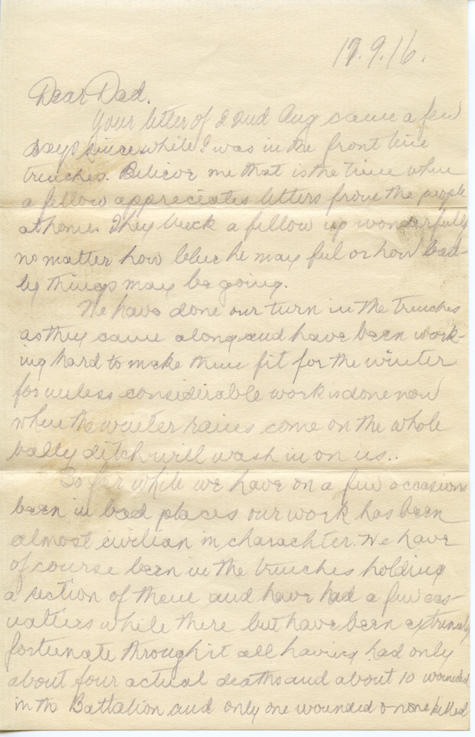 19.9.16.
Dear Dad.
Your letter of 22nd Aug came a few
days since while I was in the front line
trenches. Believe me that is the time when
a fellow appreciates letters from the people
at home. They buck a fellow up wonderfully
no matter how blue he may feel or how bad-
ly things may be going.
We have done our turn in the trenches
as they came along and have been work-
ing hard to make them fit for the winter
for unless considerable work is done now
when the winter rains come on the whole
bally ditch will wash in on us..
So far while we have on a few occasions
been in bad places our work has been
almost civilian in charachter. We have
of course been in the trenches holding
a section of them and have had a few cas-
ualties while there but have been extremely
fortunate through it all having had only
about four actual deaths and about 10 wounded
in the Battalion and only one wounded & none killed